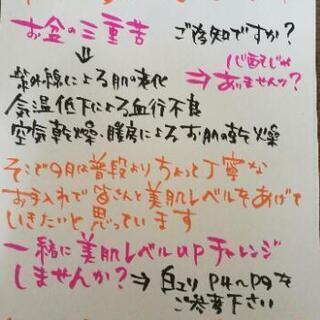 お盆の三重苦 ご存知ですか?
⇓ ⇒ 心当てが
ありませんか?
紫外線による肌の老化
気温低下による血行不良
空気乾燥・暖房によるお肌の乾燥
そこで9月は普段よりちょっと丁寧な
お手入れで皆さんと美肌レベルをあげて
いきたいと思っています
一緒に美肌レベルupチャレンジ
しませんか?⇒ 白ユリ P4〜P9を
ご参考下さい